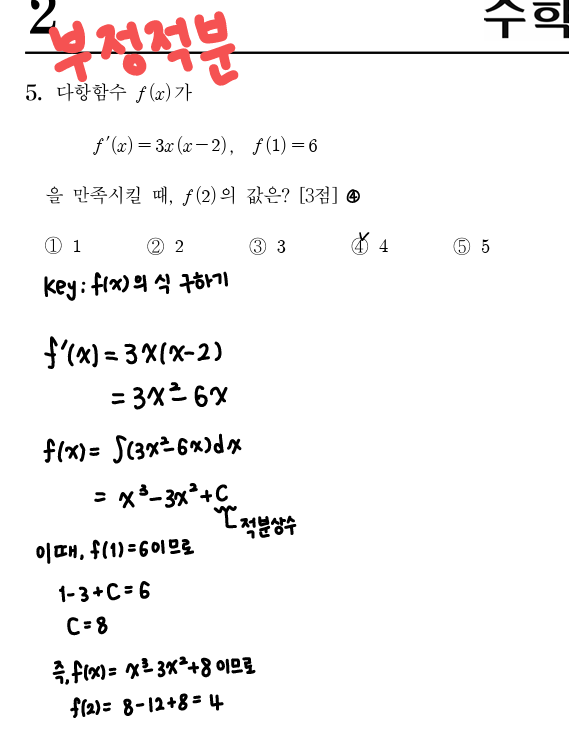 2 수학
부정적분
5. 다항함수 f(x)가
f′(x)=3x(x−2), f(1)=6
을 만족시킬 때, f(2)의 값은? [3점] ④
① 1 ② 2 ③ 3 ④ 4 ⑤ 5
key: f(x)의 식 구하기
f′(x) = 3x(x-2)
= 3x²-6x
f(x) = ∫(3x²-6x)dx
= x³-3x²+C
적분상수
이때, f(1)=6이므로
1-3+C=6
C=8
즉, f(x)= x³-3x²+8이므로
f(2)= 8-12+8=4